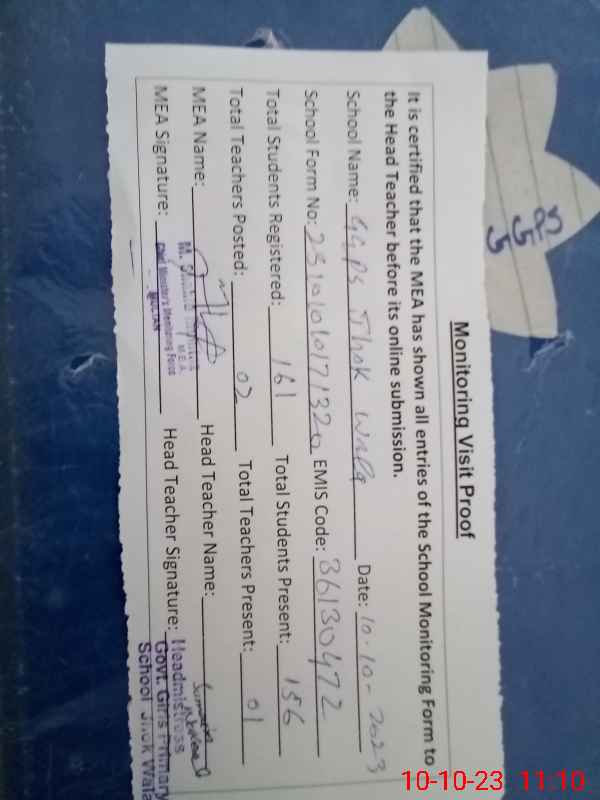 Monitoring Visit Proof
It is certified that the MEA has shown all entries of the School Monitoring Form to
the Head Teacher before its online submission.
School Name: GGPS Jhok Wala Date: 10-10-2023
School Form No: EMIS Code: 36130472
Total Students Registered: 161 Total Students Present: 156
Total Teachers Posted: 02 Total Teachers Present: 01
MEA Name: Head Teacher Name:
MEA Signature: Head Teacher Signature:
M.
M.E.A
Chief Minister's Monitoring Force
MULTAN
Headmistress
Govt. Girls Primary
School Jhok Wala
10-10-23 11:10